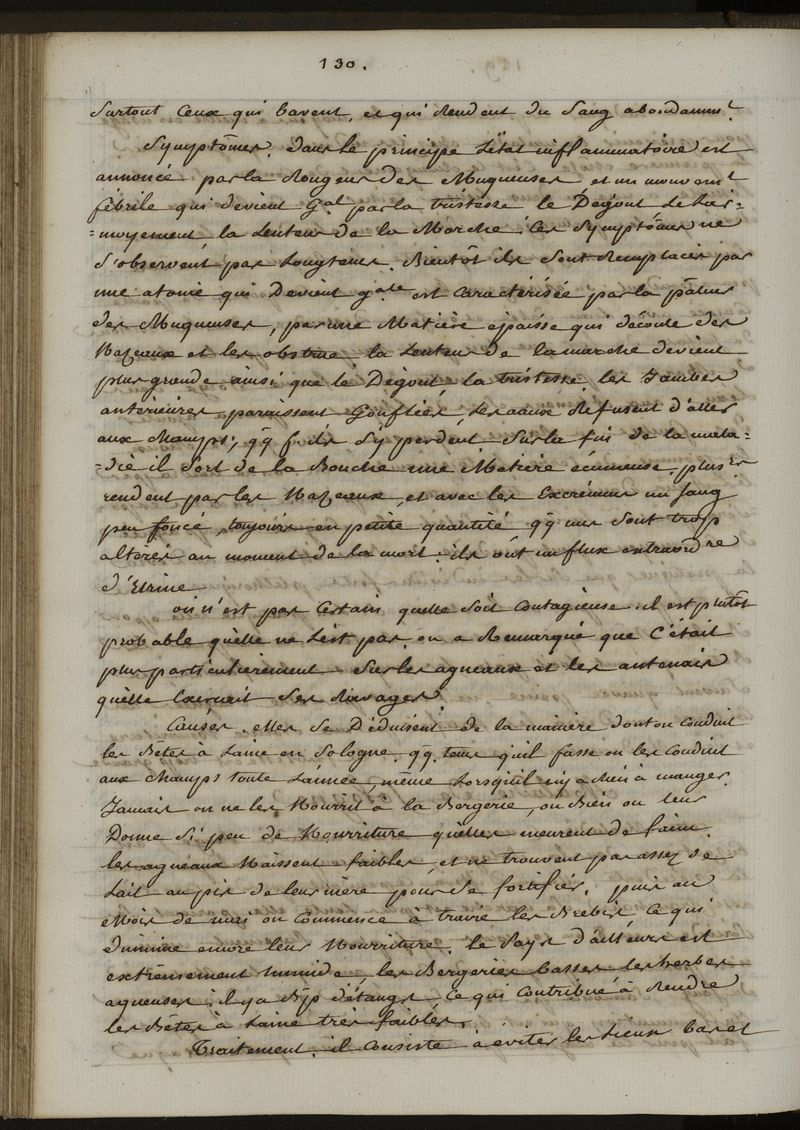 130.
Surtout Ceux qui bavent, et qui Rendent du Sang abondamt
Symptômes. dans le principe L'état inflammatoire est
annoncé par la Rougeur des Muqueuses et un mouvemt
fébrile qui devient Gal par la tristesse le Dégout Le Lar=
=moyement, la Lenteur de la Marche. Ces Symptômes ne
S'observent pas Longtems. Bientôt ils Sont Remplacés par
une atonie qui Devient gale est Caractérisée par la pâleur
des Muqueuses, par une Matière épaisse qui découle des
Nazeaux et les obstrue la Lenteur de la marche devient
plus grande ainsi que le Dégout, la tristesse, les Jambes
anterieures paraissent Gonflées, Les aaux Réfusent d'aller
aux champs, qq f. ils S'y perdent. Sur la fin de la mala-
-die il Sort de la Bouche une Matière écumeuse, plusrs
rendent par les Nazeaux, et avec les Excrémens un Sang
peu foncé, toujours en petite quantité qq uns Sont trop
altérés au moment de la mort. ils ont un flux extraordre
d'Urine
on n'est pas Certain quelle Soit Contagieuse. il est plutôt
probable quelle ne L'est pas. on a Remarqué que C'était
plus particulierement Sur les agneaux et les antenais
quelle Exerçait Ses Ravages.
Causes. elles Se Déduisent de la manière dont on Conduit
les Bêtes à Laine en Sologne. qq. tems qu'il fasse on les Conduit
aux champs toute L'année, même Lorsqu'il n'y a Rien à manger.
Jamais on ne les Nourrit à la Bergerie, ou Bien on leur
Donne Si peu de Nourriture quelles meurent de faim.
les agneaux Naissent faibles, et ne trouvent pas assez de
Lait au pis de leur mère pour Se fortifier. puis au
Mois de mai on Commence à traire les Brebis, Ce qui
diminue encore leur Nourriture. le Pays d'ailleurs est
extrêmement humide, les Bergeries basses les herbes
aqueuses, il y a Bp d'étangs Ce qui Contribue à Rendre
les Bêtes à Laine très faibles.
Traitement. il Consiste à éviter les Lieux bas et